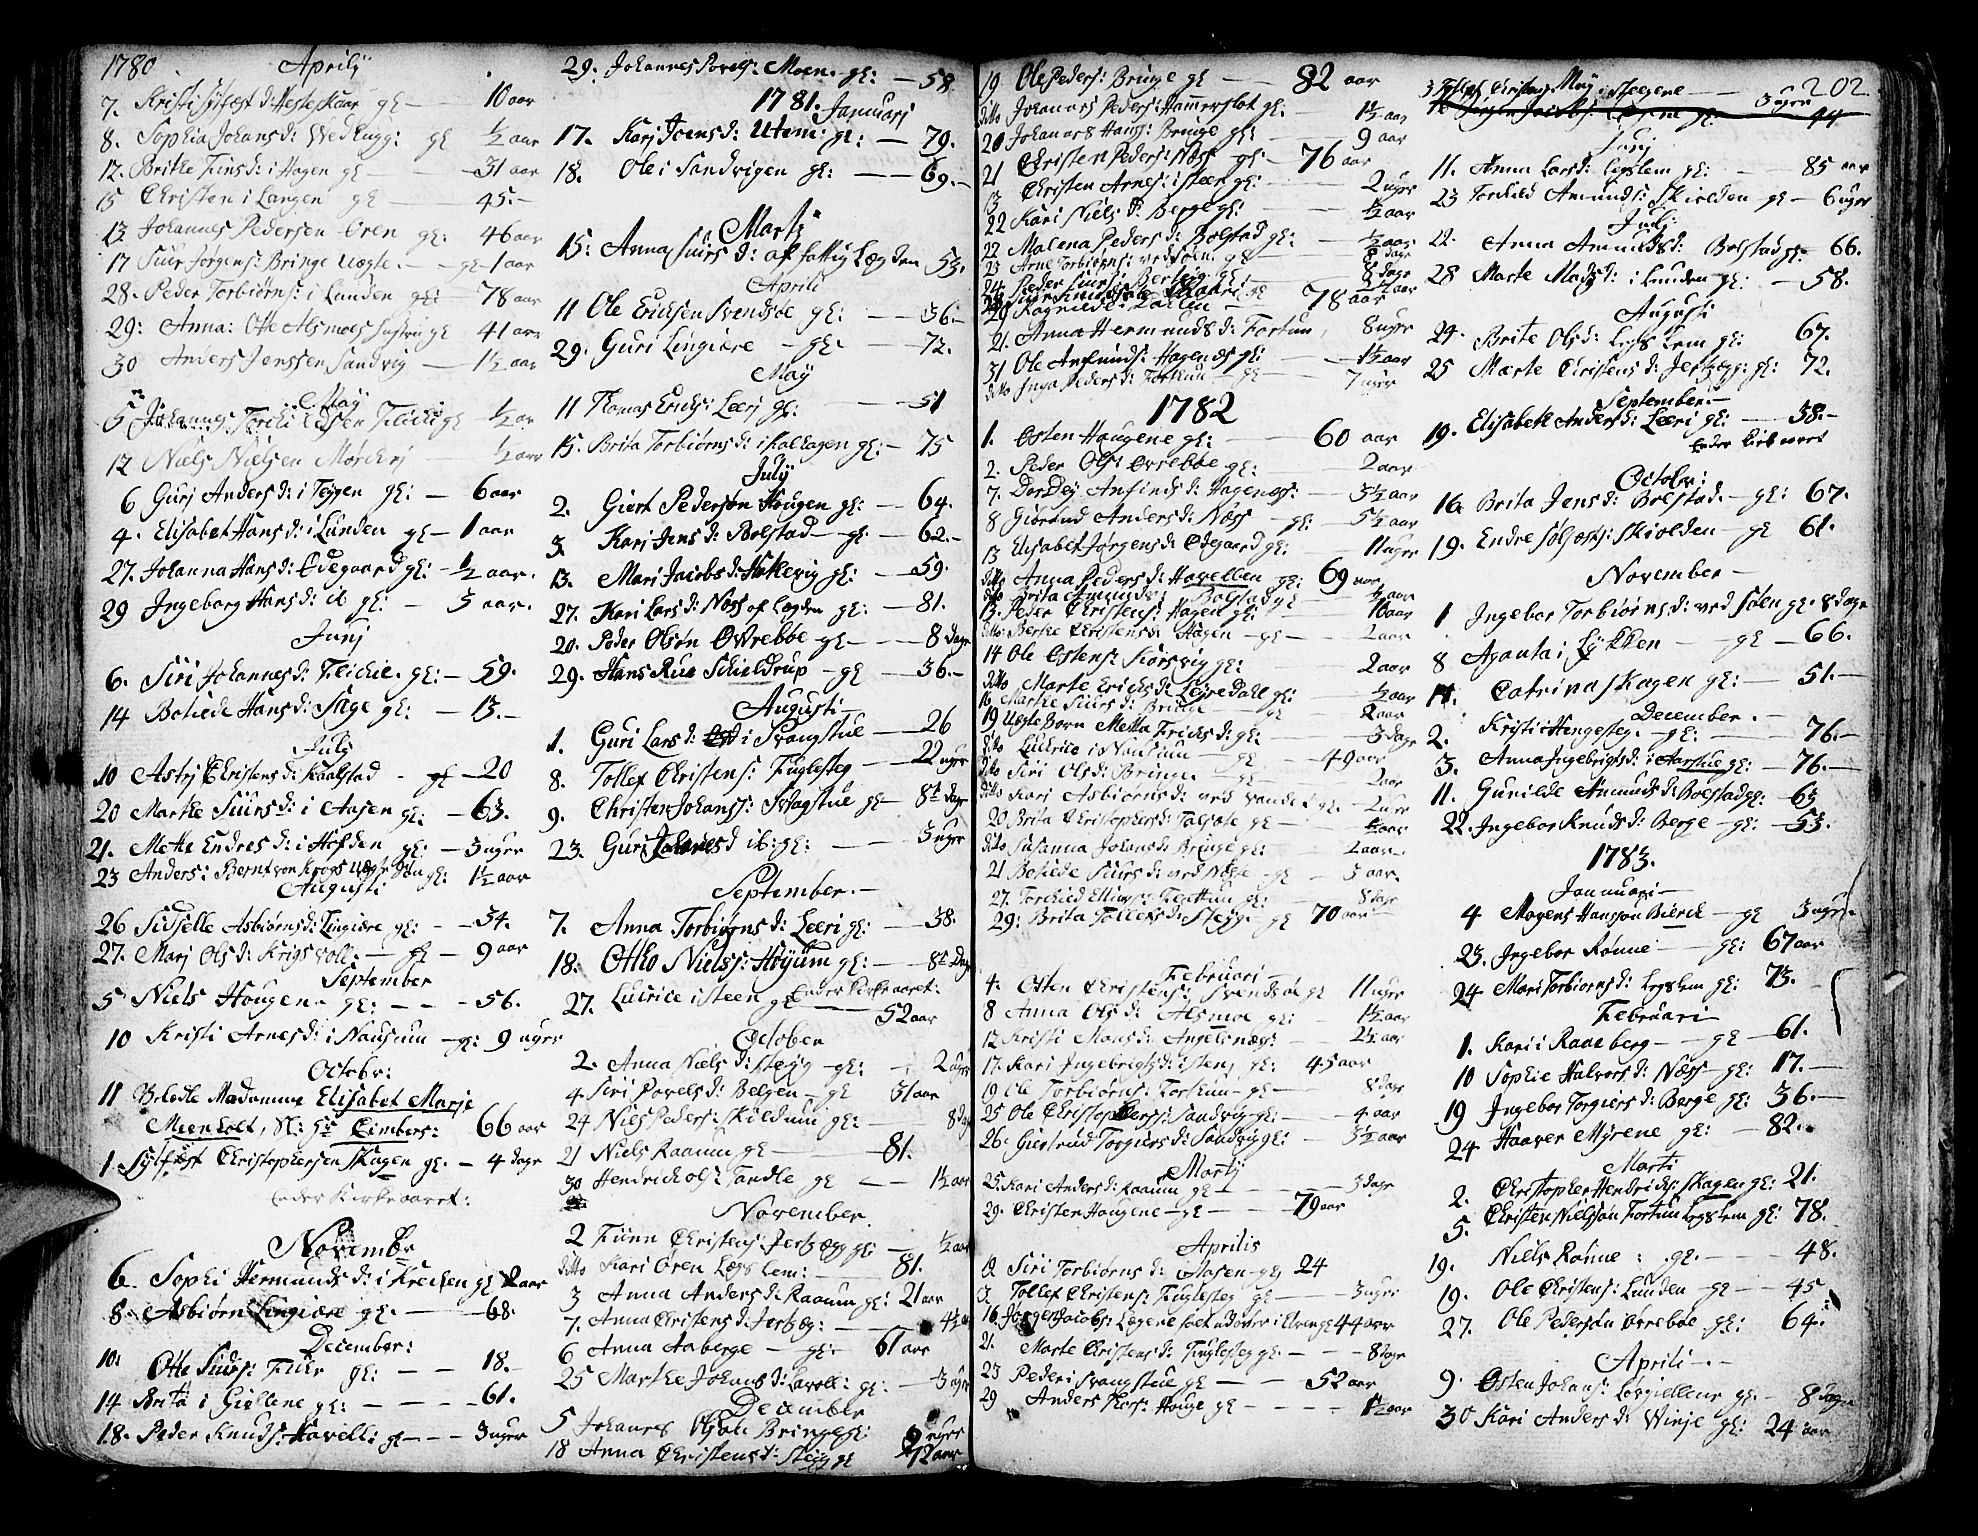 1780. Aprilij
7. Kristi Sylfæst d: Hesteskaar gl — 10 aar
8. Sophia Johans d: Vedhugg: gl ½ aar
12. Brithe Fins d: i Hagen gl — 31 aar
15 Christen i Langen gl — 45. —
13 Johannes Pedersen Øren gl: 46 aar
17 Siur Jørgens: Bringe Uægte. — gl 1 aar
28. Peder Torbiørns: i Lunden gl: 78 aar
29: Anna: Otte Alsmoes gl 41 aar
30 Anders Jenssen Sandvig — 1½ aar
May
5 Johannes gl ½ aar
12 Niels Nielsen Mørckrj — ½ aar
6 Gurj Anders d: i Teigen gl: — 6 aar
4. Elisabet Hans d: i Lunden gl — 1 aar
27. Johanna Hans d: Ødegaard gl: — ½ aar.
29 Ingeborg Hans d: ib gl: — 3 aar.
Junj
6. Siri Johannes d: gl: — 59.
14 Botilde Hans d: Fage gl: — 13. —
July
10 Astrj Christens d: Kaalstad - gl — 20
20 Marthe Siurs d: i Aasen gl: — 63.
21. Mette Endres d: i Hofden gl: — 3 uger
23 Anders: Berent von Krogs Uægte Søn gl: 1½ aar
Augusti
26 Sidselle Asbiørns d: Lingiære gl: — 34.
27. Marj Ols d: Krigsvoll — gl — 9 aar
September
5 Niels Hougen — gl: — — 56.
10 Kristi Arnes d: i Nausum — gl: 9 uger
Octobr:
11 Velædle Madamme Elisabet Marje
Meenholt, Sl: Hr Eimbers: 66 aar
1. Sylfæst Christophersen Skagen gl. — 4 dage
Ender Kirkeaaret:
Novembr
6. Sophi Hermunds d: i Kroken gl 2 aar
8. Asbiørn Lingiære gl. — 68.
December:
10. Otte Siurs: Fuur gl: — 18. —
14 Brita i Giellene gl: — — — 61.
18. Peder Knuds: Havell: gl — — 3 uger
29. Johannes Povels: Moen. gl: — 58
1781. Januarj
17. Karj Joens d: Utem: gl: — 79.
18. Ole i Sandvigen gl: — — 69. —
Martj
15. Anna Siurs d: af fattig Lægden 53.
Aprili
11 Ole Erichsen Svendsøe gl: — 36. —
29. Guri Lingiære — gl — 72.
May
11 Thomas Erichs: Leerj gl: — 51
15. Brita Torbiørns d: i Kalhagen gl: — 75
July
2. Giert Pedersøn Hougen gl: — 64.
3. Karj Jens d: Bolstad — gl — 62. —
13. Mari Jacobs d: Hakevig gl: — 59.
27. Kari Lars d: Næss af Lægden gl: — 81.
20. Peder Olsøn Øvrebøe gl — 8 dage
29. Hans Rue Schieldrup — gl — 36. —
Augusti —
1. Guri Lars d: i Svangstue — 26
8. Tollef Christens: Fuglesteg — 22 uger
9. Christen Johans: Svagstue gl — 8te dage
23. Guri Johannes d ib: gl: — 3 uger
September. —
7. Anna Torbiørns d: Leeri gl: — 38.
18. Otto Niels: Høyum gl: — 8te Dage
27. Lucrice i Steen gl 52 aar
Ender Kirkeaaret:
October
2. Anna Niels d: Stegg — gl: — 2 uger
4. Siri Povels d: Bolgen — gl 31 aar
24 Niels Peders: Skuldumi gl: — 8 dage
21 Niels Raaum gl — 81.
30 Hendrich Ols: Sandle gl — — 1½ aar
November.
2 Finn Christens: Jertzegg gl: — ½ aar
ditto Kari Øren Lægslem: — 81.
3 Anna Anders d: Raaum gl: 21 aar
7. Anna Christens d: Jertzeg: — 4½ aar
6 Anna Aaberge — gl: — 61 aar
25 Marthe Johans d: Lavoll: gl: — 3 uger
December
5 Johannes Bringe gl: 2 uger
18 Anna Christens d: Stegg gl 72 aar
19 Ole Peders: Bringe gl — — 82 aar
ditto Johannes Peders: Hamerslot gl. — 1½ aar
20 Johannes Hans: Bringe gl: — 9 aar
21 Christen Peders: Næss gl — 76 aar
13 Christen Arnes: i Steen gl: — 2 uger
22 Kari Niels d: Berge gl: — ½ aar
22 Malena Peders d: Bolstad gl: — ½ aar
23 Arne Torbiørns: ved Søen gl 8 dage
24 Peder Siurs: gl: 8 dage
29 Ragnilde i Dahlen 78 aar
21. Anna Hermunds d: Fortun, 8 uger
31 Ole Amfunds: Hagenes gl: — 1½ aar
ditto Inga Peders d: Fortun — gl — 7 uger
1782
1. Østen Hougene gl: — 60 aar
2. Peder Ols: Øvrebøe gl: — 2 aar
7. Dordej Anfinds d: Hagenes: — 3½ aar
8 Giørtrud Anders d: Næss — gl: — 5½ aar
13 Elisabet Jørgens d: Ødegaard gl: — 11 uger
ditto Anna Peders d: Havellen gl: 69 aar
do Brita Amunds d: Bolstad gl — ½ aar
13. Peder Christens: Hagen gl: — 16 aar
ditto Berthe Christens d: Hagen — gl — 2 aar
14 Ole Østens: Kiørsvig gl: — 2 aar
ditto Marte Erichs d: Leiredahl gl: — ½ aar
16. Marthe Siurs d: Bringe gl 2 aar
19 Uægte Barn Metta Erichs d: gl: — 3 dage
ditto Ludvico i Nausum gl — 49 aar
ditto Siri Ols d: Bringe — gl — 2 aar
ditto Kari Asbiørns d: ved Vandet gl. — 2 uger
20 Brita Christophers d: gl — ½ aar
ditto Susanna Johans d: Bringe gl: — 2 aar
21 Botilde Siurs d: ved — gl — 3 aar.
27. Torchild Ellings: gl: — 8 dage
29: Brita Tollefs d: Stegge gl 70 aar —
Februari —
4. Østen Christens: Svendsøe gl 11 uger
8 Anna Ols d: Alsmoe gl: — 1½ aar
12 Kristi Mons d: Angelsnæs: — 2½ aar
17. Kari Ingebrigts d: i Sten, gl: 45 aar
19 Ole Torbiørns: Fortun — gl — 8 dage
25 Ole Christophers: Sandvig gl: — 4 aar
26. Giertrud Torgiers d: Sandvig gl: — 3½ aar
Martj
25. Kari Anders d: Raaum gl — — 3 dage
29. Christen Hougene — gl — 79 aar
Aprilis
12. Siri Torbiørns d: Aasen — gl, 24
13. Tollef Christens: Fuglesteg gl — 3 uger
16. Jørgen Jacobs: Løgene fælt udover i Elven gl 44 aar
21. Marte Christens d: Fuglesteg gl — 8 dage
23 Peder i Svangstue gl — — 52 aar
29 Anders Houge gl — — — 1½ aar
202.
3 Christens: May: Stegene — 3 uger
16 Jørgen Jacobs: Løgene gl: 44
Junj
11. Anna Lars d: Legslem gl: — 85 aar
23 Torchild Amunds: Skiolden gl — 6 uger
Julj
22. Anna Amunds d: Bolstad gl — 66.
28 Marte Mads d: i Lunden gl: — 58.
Augusti
24. Brite Ols d: Legslem gl: 67.
25 Marte Christens d: Jertzegg: gl: 72.
September. —
19. Elisabeth Anders d: Leeri gl: — 58. —
Ender Kirkeaaret
October:
16. Brita Jens d: Bolstad — gl: 67.
19. Endre Sølfests: Skiolden — gl 61.
November —
1 Ingebor Torbiørns d: ved Søen gl. 8 dage
8 Aganta i Lykken — gl — 66.
14. Catrina Skagen gl: — 51. —
December. —
2. Kristi i Hengesteg. — gl: — 76. —
3. Anna Ingebrigts d: i Aarstue gl: — 76. —
11. Gunilde Amunds d: Bolstad gl: — 63
22. Ingebor Knuds d: Berge — gl: — 53.
1783.
Januari —
4 Mogens Hansson Bierck — gl 3 uger.
23. Ingebor Rønne — gl: 67 aar
24 Mari Torbiørns d: Legslem gl: 73.
Februari
1. Kari i Raaeberg — gl — 61.
10 Sophie Halvors d: Næss — gl: 17. —
19 Ingebor Torgiers d: Berge gl: 36. —
24 Haaver Myrene gl: — 82. —
Marti
2. Christopher Hendrichs: Skagen gl: 21.
5. Christen Nielsson Fortun Legslem gl: 78.
19. Niels Rønne : gl. — 48.
19. Ole Christens: Lunden — gl — 45
27. Ole Pedersøn Øvrebøe gl: 64.
Aprili —
9. Østen Johans: gl. — 8 dage
30 Kari Anders d: Vinje gl: 24 aar